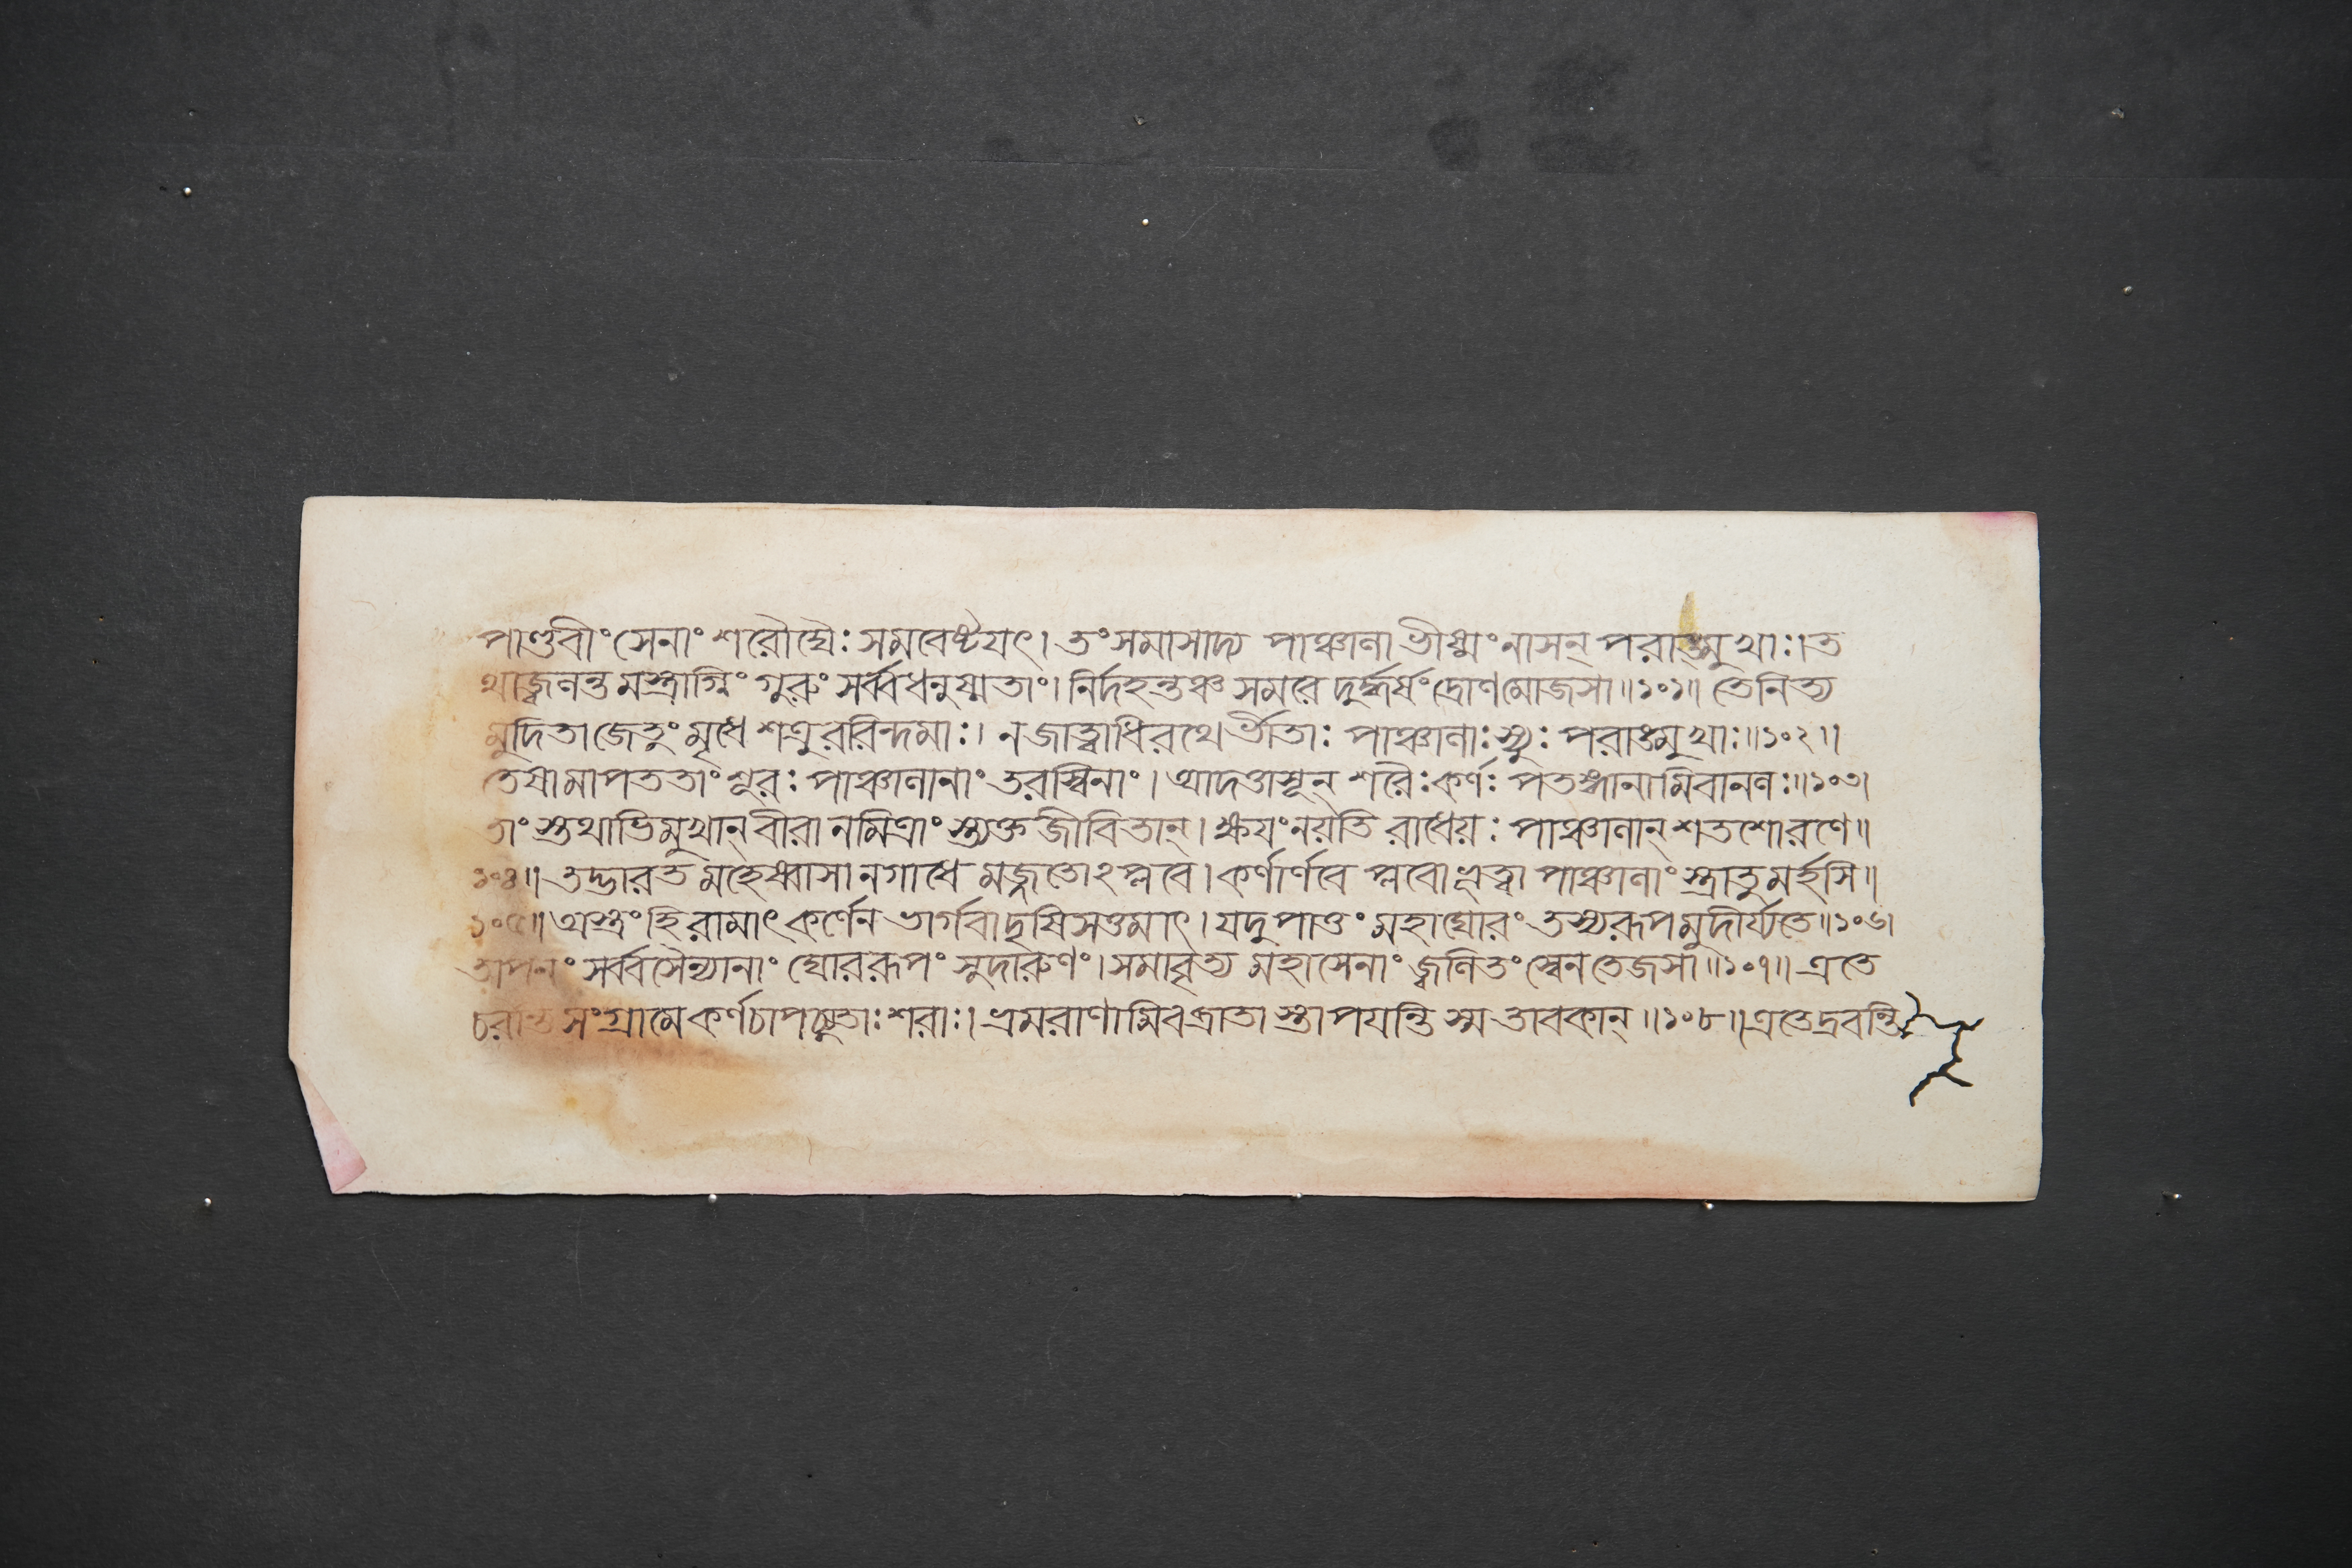 পাণ্ডবীং সেনাং শরৌঘৈঃ সমবেষ্টয়ৎ। তং সমাসাদ্য পাঞ্চালা ভীষ্মং নাসন্ পরাঙ্মুখাঃ। ত
থাজ্বলন্ত মস্ত্রাগ্নিং গুরুং সর্ব্বধনুষ্মতাং। নির্দহন্তঞ্চ সমরে দুর্দ্ধর্ষং দ্রোণমোজসা॥১০১॥ তেনিত্য
মুদিতা জেতুং মৃধে শত্রুররিন্দমাঃ। ন জাত্বাধিরথে র্ভীতাঃ পাঞ্চালাঃ স্যুঃ পরাঙ্মুখাঃ॥১০২॥
তেষামাপততাং শূরঃ পাঞ্চালানাং তরস্বিনাং। আদত্তাসূন্ শরৈঃ কর্ণঃ পতঙ্গানামিবানলঃ॥১০৩।
তাং স্তথাভিমুখান্ বীরা নমিত্রাং স্ত্যক্তজীবিতান্। ক্ষয়ং নয়তি রাধেয়ঃ পাঞ্চালান্ শতশোরণে॥
১০৪॥ তদ্ভারত মহেষ্বাসা নগাধে মজ্জতোঽপ্লবে। কর্ণার্ণবে প্লবো ভূত্বা পাঞ্চালাং স্ত্রাতুমর্হসি॥
১০৫॥ অস্ত্রং হি রামাৎ কর্ণেন ভার্গবাদৃষিসত্তমাৎ। যদুপাত্তং মহাঘোরং তস্যরূপমুদীর্য্যতে॥১০৬।
তাপনং সর্ব্বসৈন্যানাং ঘোররূপং সুদারুণং। সমাবৃত্য মহাসেনাং জ্বলিতং স্বেনতেজসা॥১০৭॥ এতে
চরন্তি সংগ্রামে কর্ণচাপচ্যুতাঃ শরাঃ। ভ্রমরাণামিবব্রাতা স্তাপয়ন্তি স্ম তাবকান্॥১০৮॥এতেদ্রবন্তি